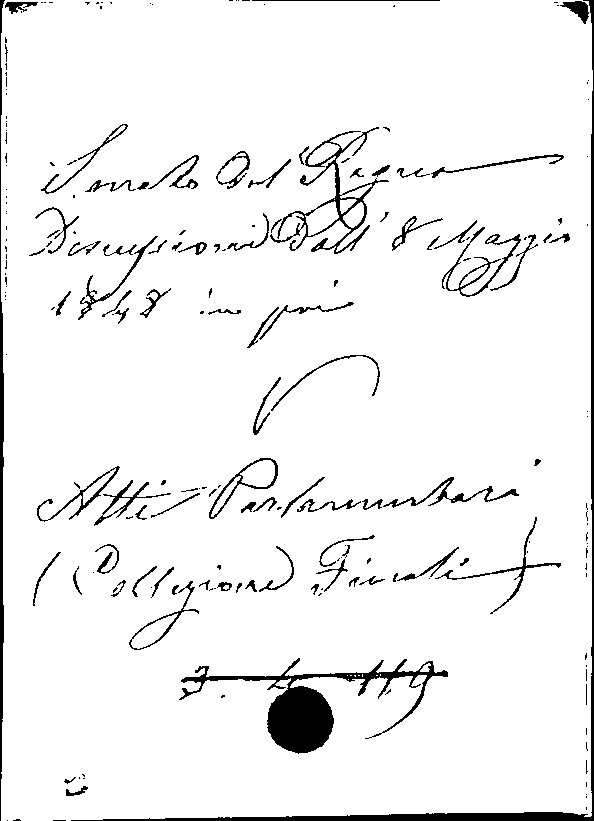 Senato del Regno
Discussioni Dall' 8 Maggio
1848 in poi
V
Atti Parlamentari
(Collezione Fiscali)
3. 4 119